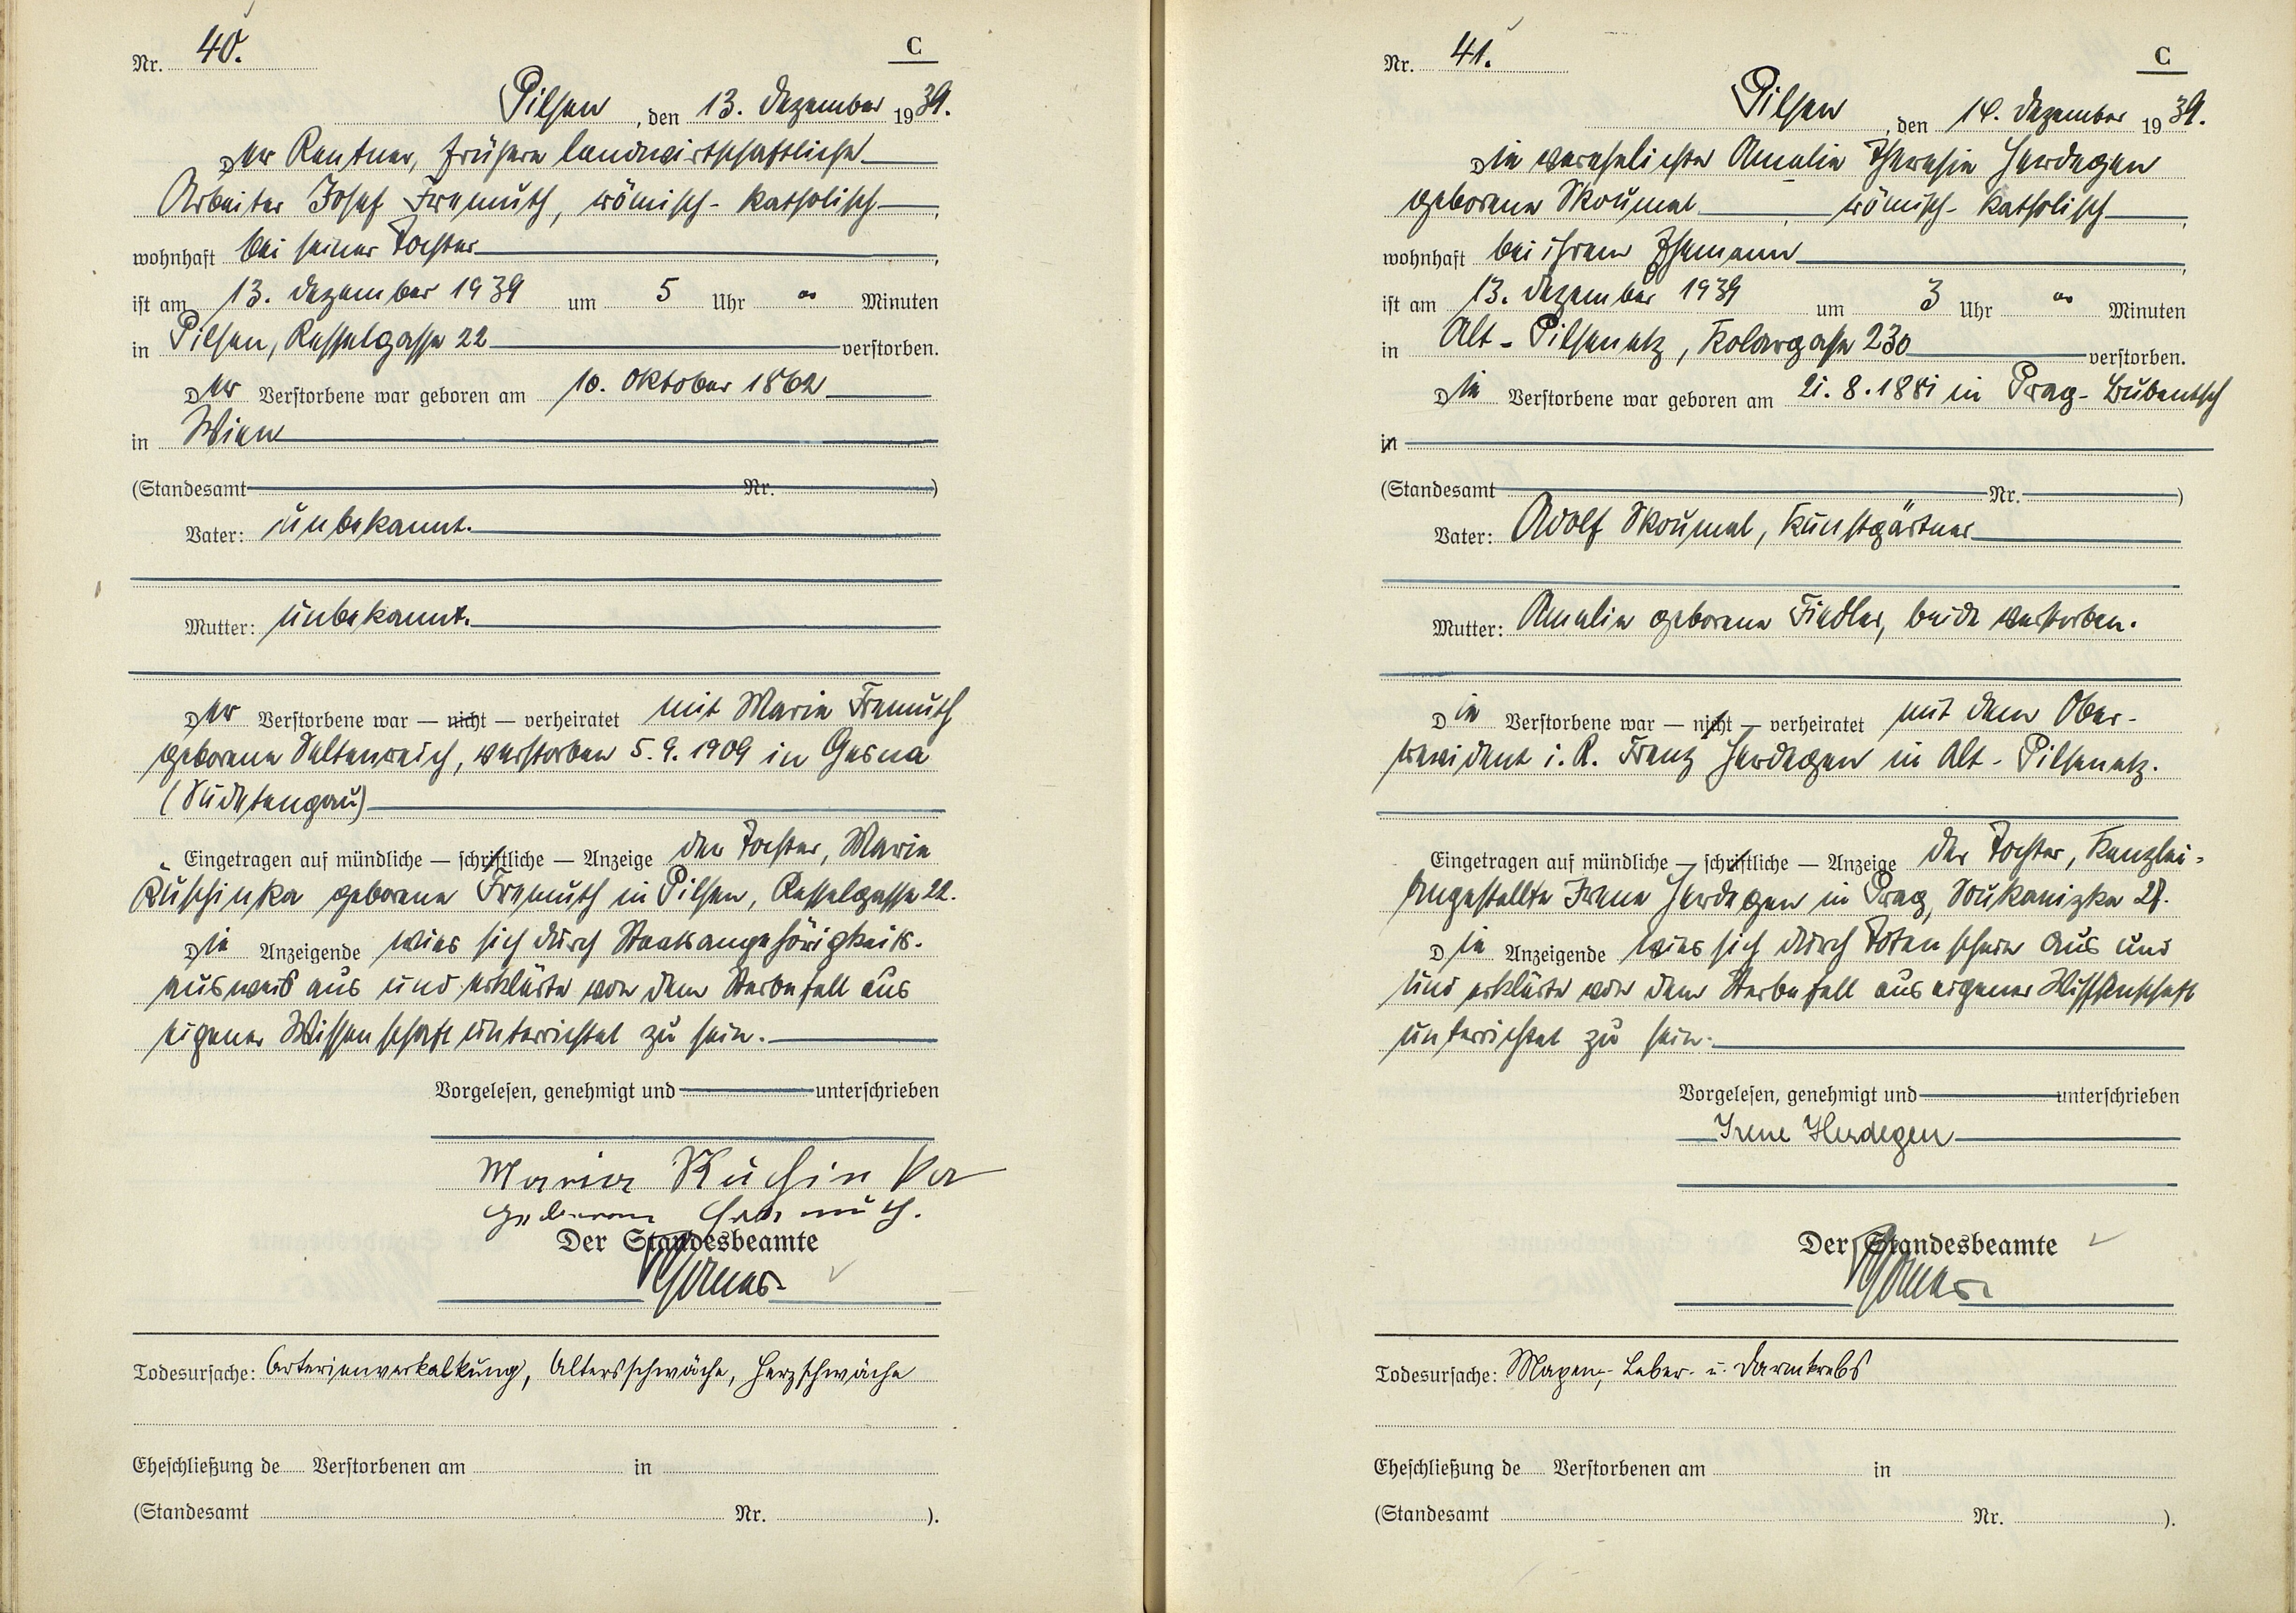 Nr. 40. C
Pilsen, den 13. Dezember 1939.
Der Rentner, frühere landwirtschaftliche
Arbeiter Josef Fremuth, römisch-katholisch,
wohnhaft bei seiner Tochter,
ist am 13. Dezember 1939 um 5 Uhr oo Minuten
in Pilsen, Resselgasse 22 verstorben.
Der Verstorbene war geboren am 10. Oktober 1862
in Wien
(Standesamt Nr. )
Vater: unbekannt.
Mutter: unbekannt.
Der Verstorbene war — nicht — verheiratet mit Maria Fremuth
geborene Seltenreich, verstorben 5.9.1909 in Gesna
(Sudetengau)
Eingetragen auf mündliche — schriftliche — Anzeige der Tochter, Marie
Ruschinka geborene Fremuth in Pilsen, Resselgasse 22.
Die Anzeigende wies sich durch Staatsangehörigkeits-
ausweis aus und erklärte von dem Sterbefall aus
eigener Wissenschaft unterrichtet zu sein.
Vorgelesen, genehmigt und unterschrieben
Maria
geborene Fremuth.
Der Standesbeamte
Todesursache: Arterienverkalkung, Altersschwäche, Herzschwäche
Eheschließung de Verstorbenen am in
(Standesamt Nr. ).
Nr. 41. C
Pilsen, den 14. Dezember 1939.
Die verehelichte Amalie Theresie Herdegen
geborene Skoumal, römisch-katholisch,
wohnhaft bei ihrem Ehemann,
ist am 13. Dezember 1939 um 3 Uhr oo Minuten
in Alt-Pilsenetz, Kolargasse 230 verstorben.
Die Verstorbene war geboren am 21.8.1881 in Prag-Bubentsch
in
(Standesamt Nr. )
Vater: Adolf Skoumal, Kunstgärtner
Mutter: Amalie geborene Fiedler, beide verstorben.
Die Verstorbene war — nicht — verheiratet mit dem Ober-
revident i. R. Franz Herdegen in Alt-Pilsenetz.
Eingetragen auf mündliche — schriftliche — Anzeige der Tochter, Kanzlei-
Angestellte Irene Herdegen in Prag,
Die Anzeigende wies sich durch Totenschein aus und
und erklärte von dem Sterbefall aus eigener Wissenschaft
unterrichtet zu sein.
Vorgelesen, genehmigt und unterschrieben
Irene Herdegen
Der Standesbeamte
Todesursache: Magen-, Leber- u. Darmkrebs
Eheschließung de Verstorbenen am in
(Standesamt Nr. ).